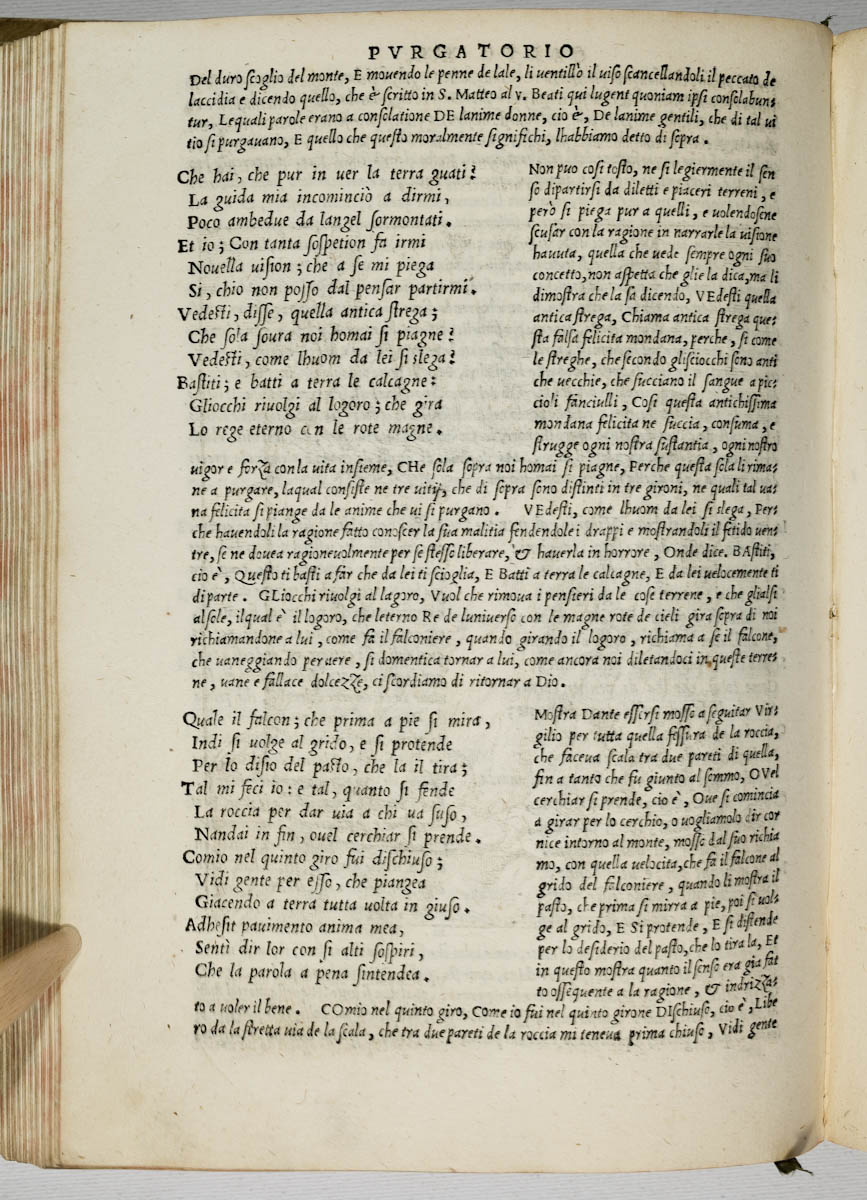 PVRGATORIO
Del duro scoglio del monte, E movendo le penne de lale, li ventillò il viso scancellandoli il peccato de
laccidia e dicendo quello, che è scritto in S. Matteo al v. Beati qui lugent quoniam ipsi consolabun
tur, Lequali parole erano a consolatione DE lanime donne, cio è, De lanime gentili, che di tal ui
tio si purgauano, E quello che questo moralmente significhi, lhabbiamo detto di sopra.
Che hai, che pur in uer la terra guati?
La guida mia incominciò a dirmi,
Poco ambedue da langel sormontati.
Et io; Con tanta sospetion fa irmi
Nouella uision; che a se mi piega
Si, chio non posso dal pensar partirmi.
Vedesti, disse, quella antica strega;
Che sola soura noi homai si piagne?
Vedesti, come lhuom da lei si slega?
Bastiti; e batti a terra le calcagne:
Gliocchi riuolgi al logoro; che gira
Lo rege eterno con le rote magne.
Non puo cosi tosto, ne si legiermente il sen
so dipartirsi da diletti e piaceri terreni, e
però si piega pur a quelli, e uolendosene
scusar con la ragione in narrarle la uisione
hauuta, quella che uede sempre ogni suo
concetto, non aspetta che glie la dica, ma li
dimostra che la sa dicendo, VEdesti quella
antica strega, Chiama antica strega que-
sta falsa felicita mondana, perche, si come
le streghe, che secondo glisciocchi sono anti
che uecchie, che succiano il sangue a pic-
cioli fanciulli, Cosi questa antichissima
mondana felicita ne succia, consuma, e
strugge ogni nostra sustantia, ogni nostro
uigor e forza con la uita insieme, CHe sola sopra noi homai si piagne, Perche questa sola li rima-
ne a purgare, laqual consiste ne tre uitij, che di sopra sono distinti in tre gironi, ne quali tal ua-
na felicita si piange da le anime che ui si purgano. VEdesti, come lhuom da lei si slega, Per-
che hauendoli la ragione fatto conoscer la sua malitia fendendole i drappi e mostrandoli il fetido uen-
tre, se ne douea ragioneuolmente per se stesso liberare, & hauerla in horrore, Onde dice. BAstiti,
cio è, Questo ti basti a far che da lei ti scioglia, E Batti a terra le calcagne, E da lei uelocemente ti
diparte. GLiocchi riuolgi al lagoro, Vuol che rimoua i pensieri da le cose terrene, e che glialsi
al sole, ilqual è il logoro, che leterno Re de luniuerso con le magne rote de cieli gira sopra di noi
richiamandone a lui, come fa il falconiere, quando girando il logoro, richiama a se il falcone,
che uaneggiando per aere, si domentica tornar a lui, come ancora noi diletandoci in queste terre-
ne, uane e fallace dolcezze, ci scordiamo di ritornar a Dio.
Quale il falcon; che prima a pie si mira,
Indi si uolge al grido, e si protende
Per lo disio del pasto, che la il tira;
Tal mi feci io: e tal, quanto si fende
La roccia per dar uia a chi ua suso,
Nandai in fin, ouel cerchiar si prende.
Comio nel quinto giro fui dischiuso;
Vidi gente per esso, che piangea
Giacendo a terra tutta uolta in giuso.
Adhesit pauimento anima mea,
Sentì dir lor con si alti sospiri,
Che la parola a pena sintendea.
Mostra Dante essersi mosso a seguitar Vir-
gilio per tutta quella fessura de la roccia,
che faceua scala tra due pareti di quella,
fin a tanto che fu giunto al sommo, OVel
cerchiar si prende, cio è, Oue si comincia
a girar per lo cerchio, o uogliamolo dir cor
nice intorno al monte, mosso dal suo richia
mo, con quella uelocita, che fa il falcone al
grido del falconiere, quando li mostra il
pasto, che prima si mirra a pie, poi si uol-
ge al grido, E Si protende, E si distende
per lo desiderio del pasto, che lo tira la, Et
in questo mostra quanto il senso era gia fat
to ossequente a la ragione, & indrizza-
to a uoler il bene. COmio nel quinto giro, Come io fui nel quinto girone DIschiuso, cio è, Libe
ro da la stretta uia de la scala, che tra due pareti de la roccia mi teneua prima chiuso, Vidi gente